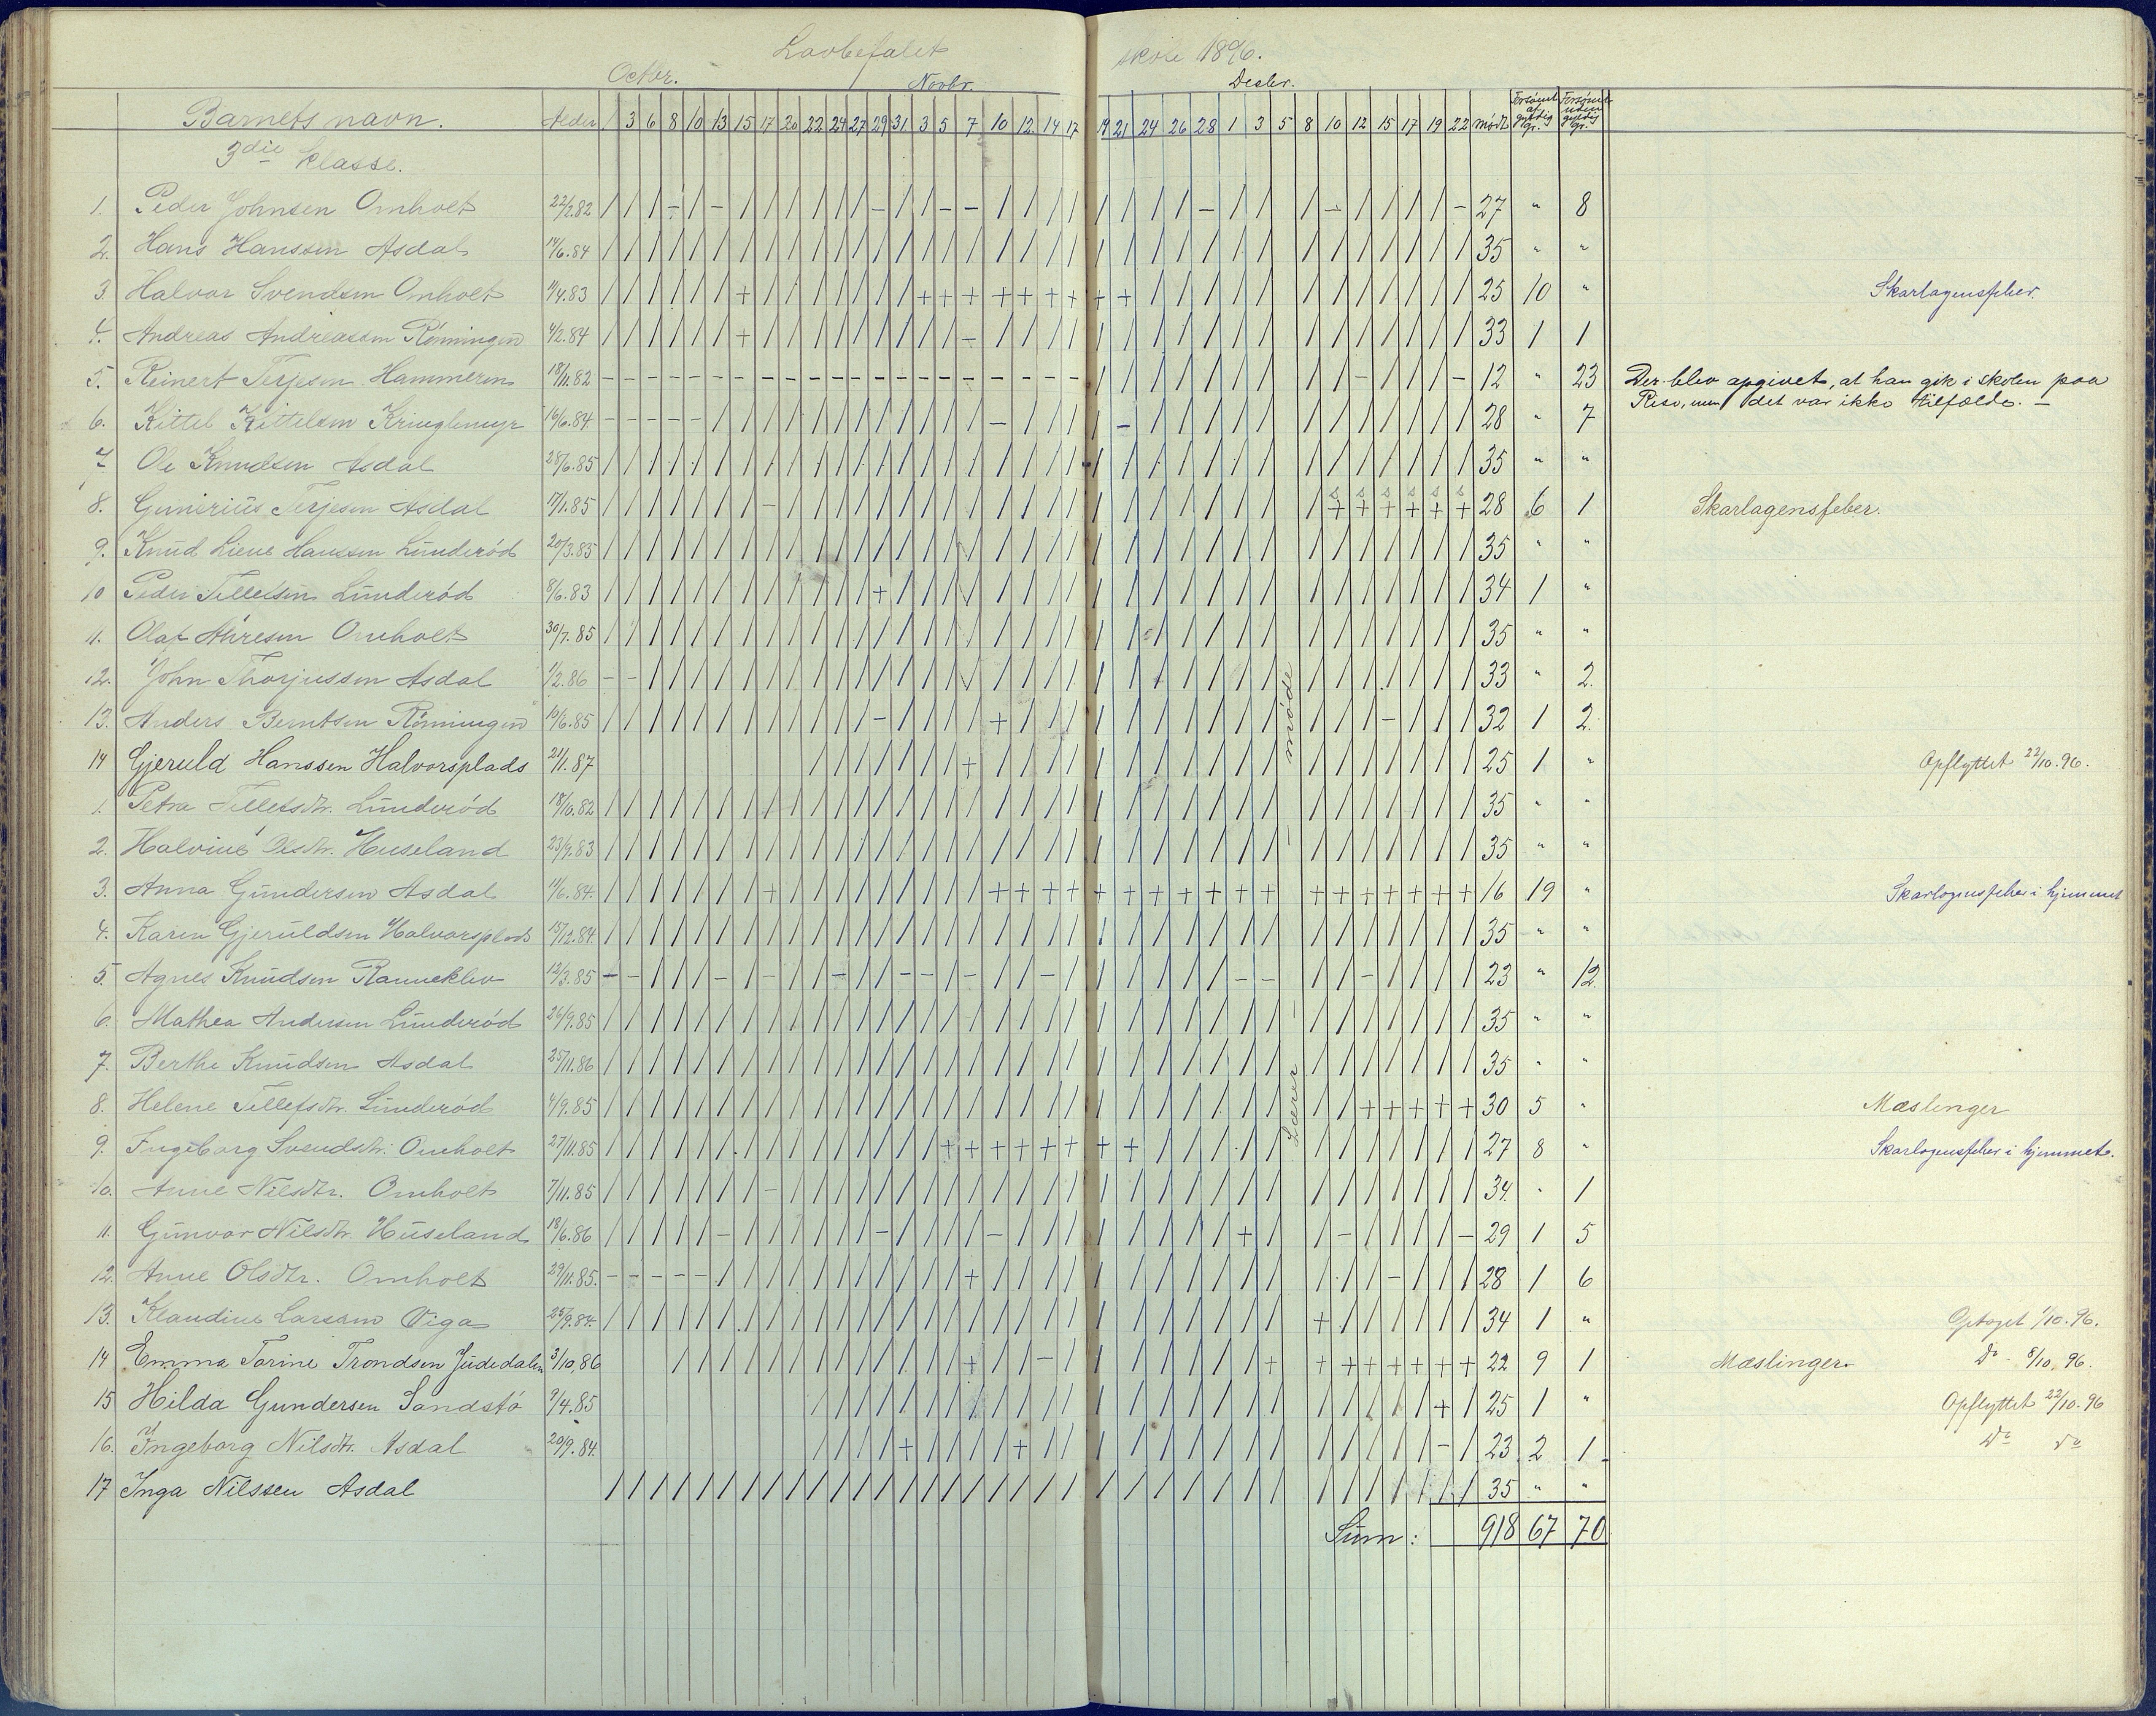 Lovbefalet skole 1896.
Octbr. Novbr. Decbr.
Barnets navn. Alder 1 3 6 8 10 13 15 17 20 22 24 27 29 31 3 5 7 10 12 14 17 19 21 24 26 28 1 3 5 8 10 12 15 17 19 22 mødt Forsømt af gyldig gr. Forsømt uden gyldig gr.
3die klasse.
1. Peder Johnsen Omholt 22/2.82 / / / - / - / / / / / / - / / - - / / / / / / / / - / / / - / / / / - 27 " 8
2. Hans Hanssen Asdal 14/6.84 / / / / / / / / / / / / / / / / / / / / / / / / / / / / / / / / / / / 35 " "
3 Halvor Svendsen Omholt 11/4.83 / / / / / / + / / / / / / / + + + + + + + + + / / / / / / / / / / / / 25 10 " Skarlagensfeber.
4. Andreas Andreassen Rönningen 4/2.84 / / / / / / + / / / / / / / / / - / / / / / / / / / / / / / / / / / / 33 1 1
5. Reinert Terjesen Hammeren 18/11.82 - - - - - - - - - - - - - - - - - - - - - / / / / / / / / / / - / / / - 12 " 23 Der blev opgivet, at han gik i skolen paa
Riso, men det var ikke tilfælde. -
6. Kittel Kittelsen Kringlemyr 16/6.84 - - - - - / / / / / / / / / / / / - / / / / - / / / / / / / / / / / / 28 " 7
7. Ole Knudsen Asdal 28/6.85 / / / / / / / / / / / / / / / / / / / / / / / / / / / / / / / / / / / 35 " "
8. Gunerius Terjesen Asdal 17/1.85 / / / / / / / - / / / / / / / / / / / / / / / / / / / / / + + + + + + 28 6 1 Skarlagensfeber.
9. Knud Liene Hanssen Lunderöd 20/3.85 / / / / / / / / / / / / / / / / / / / / / / / / / / / / / / / / / / / 35 " "
10 Peder Tellefsen Lunderöd 8/6.83 / / / / / / / / / / / / + / / / / / / / / / / / / / / / / / / / / / / 34 1 "
11. Olaf Aüresen Omholt 30/7.85 / / / / / / / / / / / / / / / / / / / / / / / / / / / / / / / / / / / 35 " "
12. John Thorjussen Asdal 1/2.86 - - / / / / / / / / / / / / / / / / / / / / / / / / / / / / / / / / / 33 " 2.
13. Anders Berntsen Rönningen 10/6.85 / / / / / / / / / / / / - / / / / + / / / / / / / / / / / / / - / / / 32 1 2.
14 Gjeruld Hanssen Halvorsplads 21/1.87 / / / / / / / + / / / / / / / / / / / / / / / / / / 25 1 " Opflyttet 22/10.96.
1. Petra Tellefsdtr. Lunderöd 18/10.82 / / / / / / / / / / / / / / / / / / / / / / / / / / / / / / / / / / / 35 " "
2. Halvine Olsdtr. Huseland 23/9.83 / / / / / / / / / / / / / / / / / / / / / / / / / / / / / / / / / / / 35 " "
3. Anna Gundersen Asdal 11/6.84. / / / / / / / + / / / / / / / / / + + + + + + + + + + + + + + + + + + 16 19 " Skarlagensfeber i hjemmet
4. Karen Gjeruldsen Halvorsplads 15/12.84. / / / / / / / / / / / / / / / / / / / / / / / / / / / / / / / / / / / 35 " "
5. Agnes Knudsen Ranneklev 12/3.85 - - / / / - / - / / - / / - - / - / / - / / / / / / - - / / - / / / / 23 " 12.
6. Mathea Andersen Lunderöd 26/9.85 / / / / / / / / / / / / / / / / / / / / / / / / / / / / / / / / / / / 35 " "
7. Berthe Knudsen Asdal 25/11.86 / / / / / / / / / / / / / / / / / / / / / / / / / / / / / / / / / / / 35 " "
8. Helene Tellefsdtr. Lunderöd 4/9.85 / / / / / / / / / / / / / / / / / / / / / / / / / / / / / / + + + + + 30 5 " Mæslinger
9. Ingeborg Svendsdtr. Omholt 27/11.85 / / / / / / / / / / / / / / / + + + + + + + + / / / / / / / / / / / / 27 8 " Skarlagensfeber i hjemmet.
10. Anne Nilsdtr. Omholt 7/11.85 / / / / / / / - / / / / / / / / / / / / / / / / / / / / / / / / / / / 34. " 1
11. Gunvor Nilsdtr. Huseland 18/6.86 / / / / / - / / / / / / - / / / / - / / / / / / / / + / / - / / / / - 29 1 5
12. Anne Olsdtr. Omholt 29/11.85. - - - - - / / / / / / / / / / / + / / / / / / / / / / / / / / - / / / 28 1 6
13. Klaudine Larssen Viga 25/9.84. / / / / / / / / / / / / / / / / / / / / / / / / / / / / + / / / / / / 34 1 " Optaget 1/10.96.
14 Emma Tarine Trondsen Judedalen 3/10,86 / / / / / / / / / / / / / + / / - / / / / / / / / + + + + + + + + 22 9 1 Mæslinger Do. 8/10. 96.
15 Hilda Gundersen Sandstö 9/4.85 / / / / / / / / / / / / / / / / / / / / / / / / + / 25 1 " Opflyttet 22/10.96
16. Ingeborg Nilsdtr. Asdal 20/9.84. / / / / + / / / / + / / / / / / / / / / / / / / - / 23 2 1. Do do
17 Inga Nilssen Asdal / / / / / / / / / / / / / / / / / / / / / / / / / / / / / / / / / / / 35 " "
Lærer - møde
Sum: 918 67 70